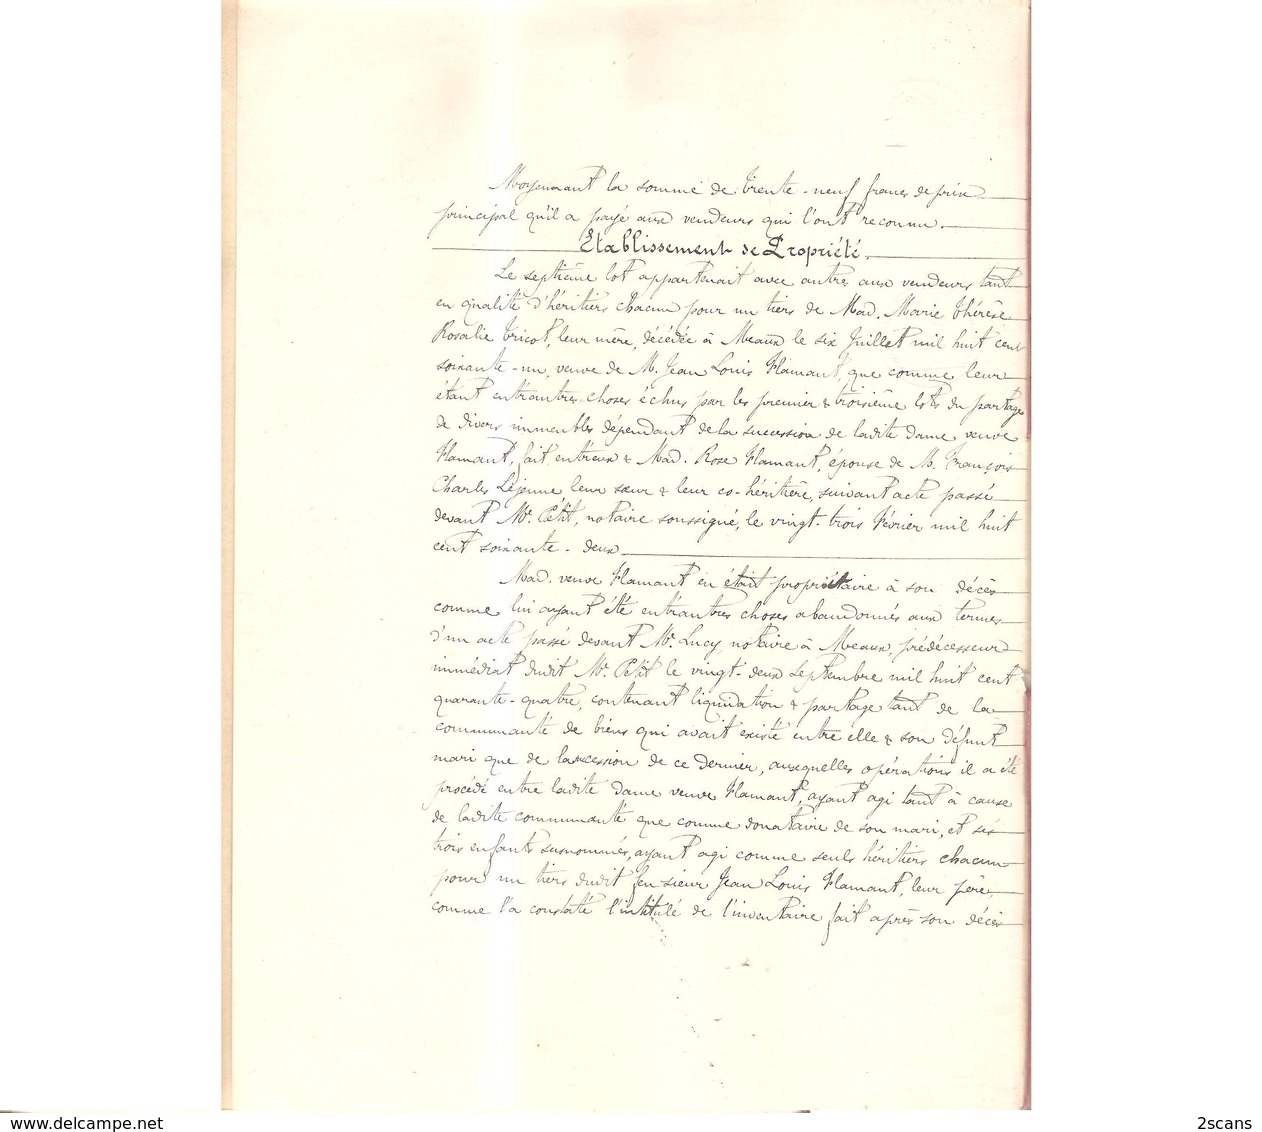 Moyennant la somme de trente-neuf francs de prix
principal qu'il a payé aux vendeurs qui l'ont reconnu.
Etablissement de Propriété.
Le septième lot appartenait avec autres aux vendeurs tant
en qualité d'héritiers chacun pour un tiers de Mad. Marie Thérèse
Rosalie Tricot, leur mère, décédée à Meaux le six Juillet mil huit cent
soixante-un, veuve de M. Jean Louis Flamant, que comme leur
étant entr'autres choses échus par les premier & troisième lots du partage
de divers immeubles dépendant de la succession de ladite dame veuve
Flamant, fait entr'eux & Mad. Rose Flamant, épouse de M. François
Charles Lejeune leur sœur & leur co-héritière, suivant acte passé
devant Me. Petit, notaire soussigné, le vingt-trois Février mil huit
cent soixante-deux
Mad. veuve Flamant en était propriétaire à son décès
comme lui ayant été entr'autres choses abandonnés aux termes
d'un acte passé devant Me. Lucy, notaire à Meaux, prédécesseur
immédiat dudit Me. Petit le vingt-deux Septembre mil huit cent
quarante-quatre, contenant liquidation & partage tant de la
communauté de biens qui avait existé entre elle & son défunt
mari que de la succession de ce dernier, auxquelles opérations il a été
procédé entre ladite dame veuve Flamant, ayant agi tant à cause
de ladite communauté que comme donataire de son mari, et ses
trois enfants susnommés, ayant agi comme seuls héritiers chacun
pour un tiers dudit feu sieur Jean Louis Flamant, leur père,
comme l'a constaté l'intitulé de l'inventaire fait après son décès
www.delcampe.net
2scans